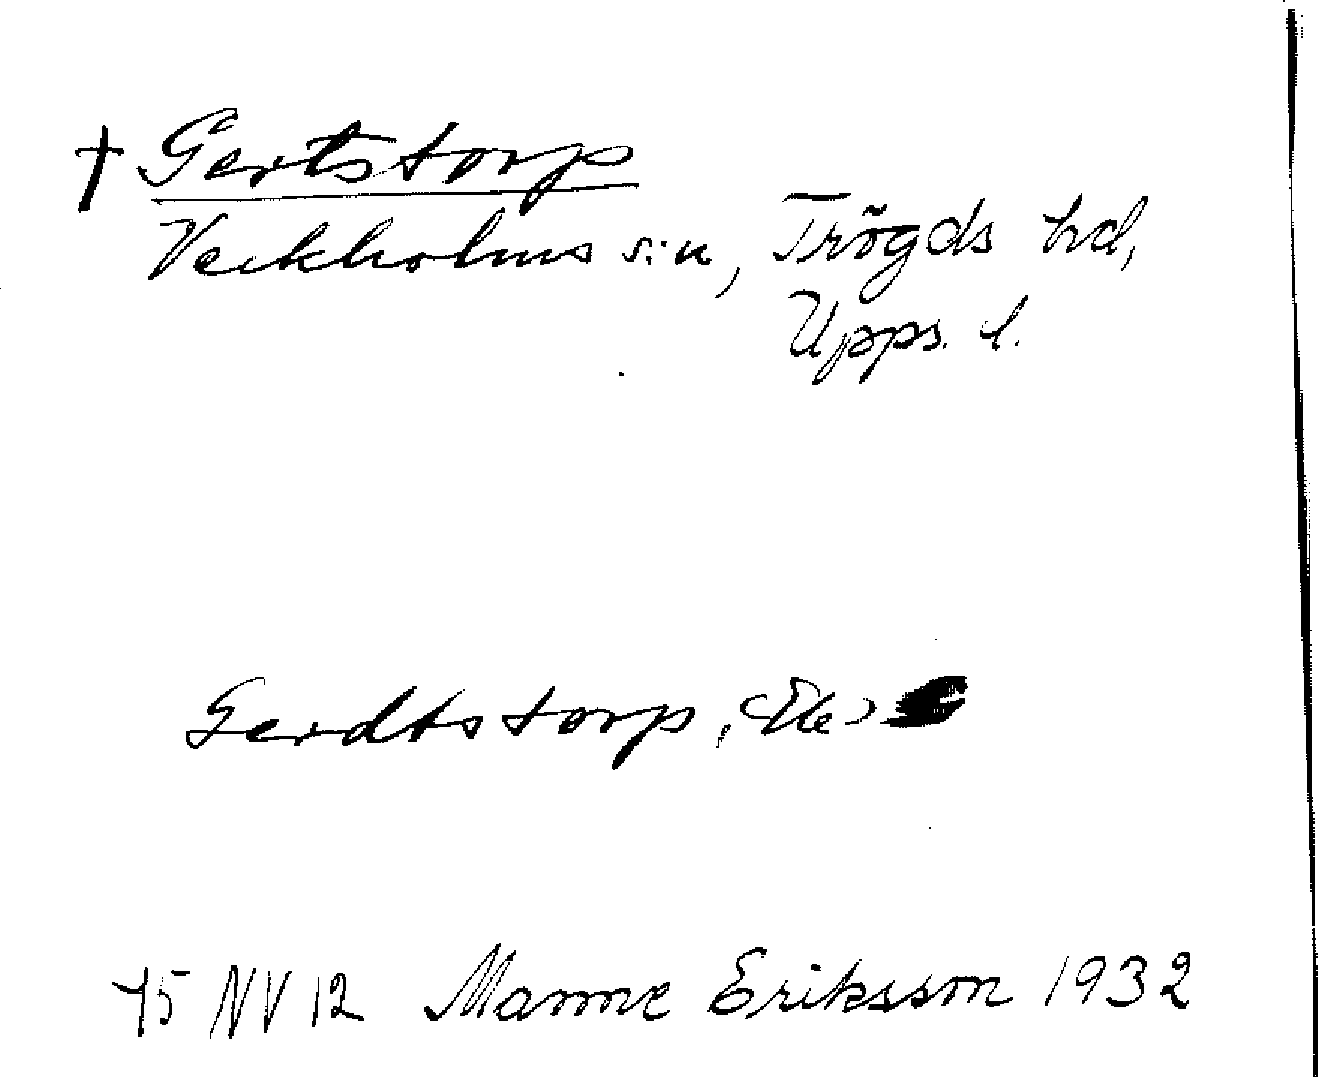 † Gertstorp
Veckholms s:n, Trögds hd,
Upps. l.
Gerdtstorp, (Ek)
75 NV 12 Manne Eriksson 1932